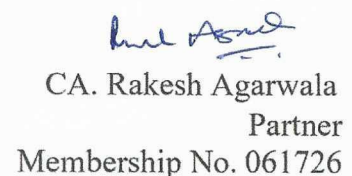 CA. Rakesh Agarwala
Partner
Membership No. 061726